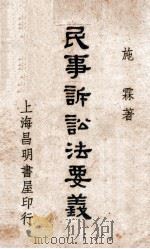 施霖著
民事訴訟法要義
上海昌明書屋印行